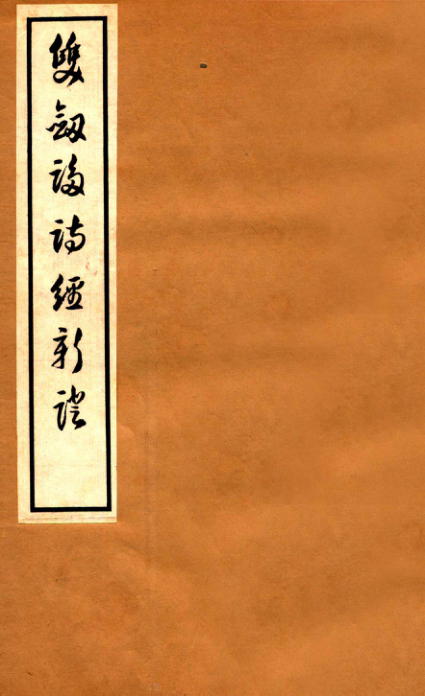 雙劒誃詩經新證